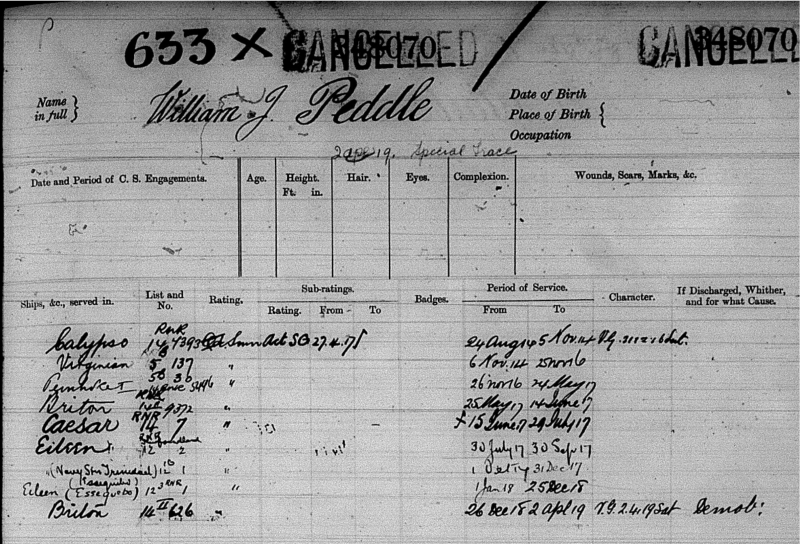 633 X CANCELLED 348070 CANCELLED 348070
Name in full } William J. Peddle
Date of Birth
Place of Birth {
Occupation
19. Special Trace
Date and Period of C. S. Engagements. Age. Height. Ft. in. Hair. Eyes. Complexion. Wounds, Scars, Marks, &c.
Ships, &c., served in. List and No. Rating. Sub-ratings. Rating. From To Badges. Period of Service. From To Character. If Discharged, Whither, and for what Cause.
RNR
Calypso 14 Smn Act SG 27.4.17 24 Aug 14 5 Nov. 14 V.G.
Virginian 5 137 " 6 Nov. 14 25 Nov 16
30 " 26 Nov 16 24 May 17
Briton 9372 " 25 May 17 14 June 17
Caesar RNR 14 7 " + 15 June 17 29 July 17
Eileen 12 2 30 July 17 30 Sep 17
(Navy Strs Trinidad) 12 1 " 1 Oct 17 31 Dec 17
Eileen (Essequibo) 12 RNR 1 " 1 Jan 18 25 Dec 18
Briton 14 II 626 " 26 Dec 18 2 Apl 19 V.G. 2.4.19 Sat Demob: